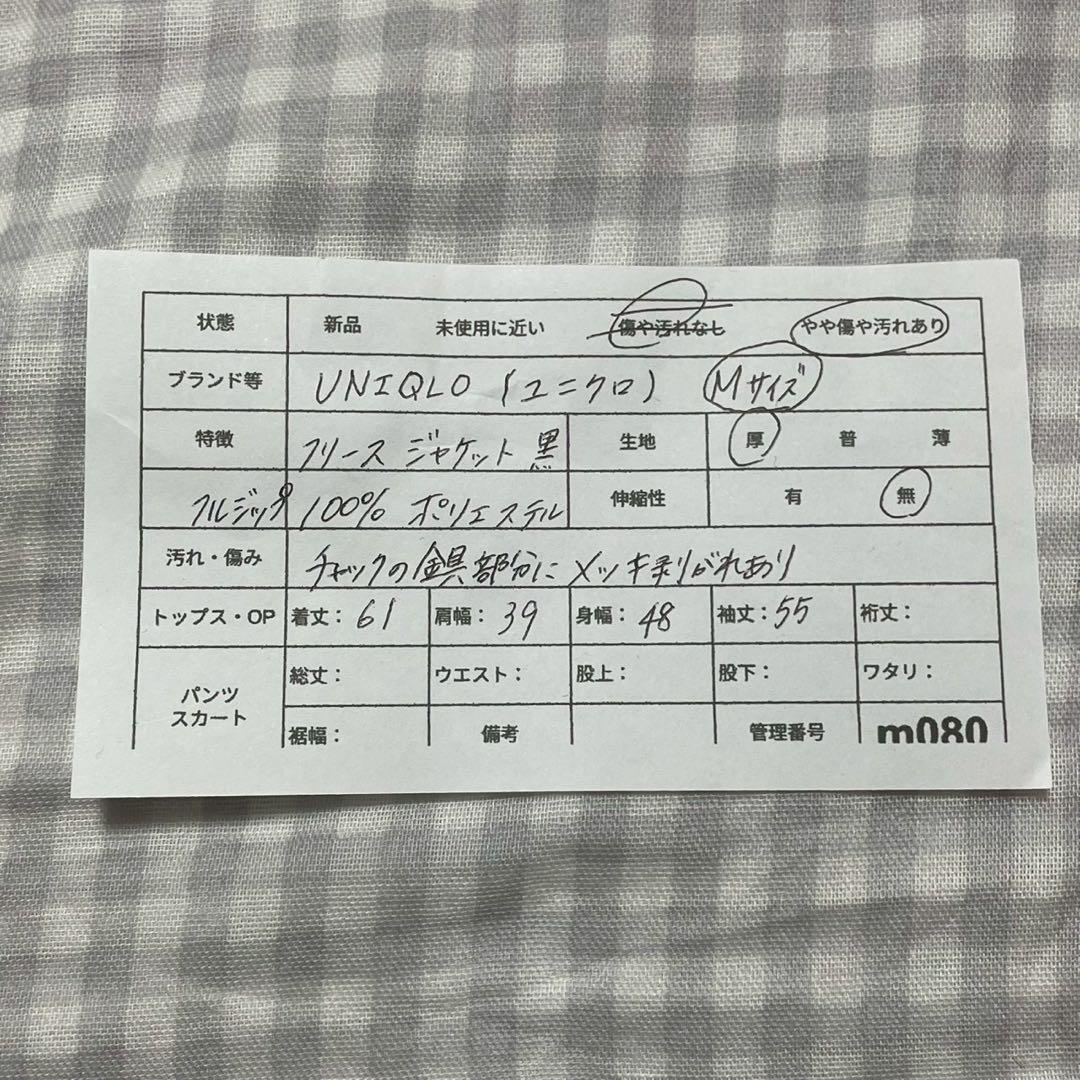 状態 新品 未使用に近い 傷や汚れなし やや傷や汚れあり
ブランド等 UNIQLO (ユニクロ) Mサイズ
特徴 フリース ジャケット 黒 生地 厚 普 薄
フルジップ 100% ポリエステル 伸縮性 有 無
汚れ・傷み チャックの金具部分にメッキ剥がれあり
トップス・OP 着丈: 61 肩幅: 39 身幅: 48 袖丈: 55 裄丈:
パンツ スカート 総丈: ウエスト: 股上: 股下: ワタリ:
裾幅: 備考 管理番号 m080